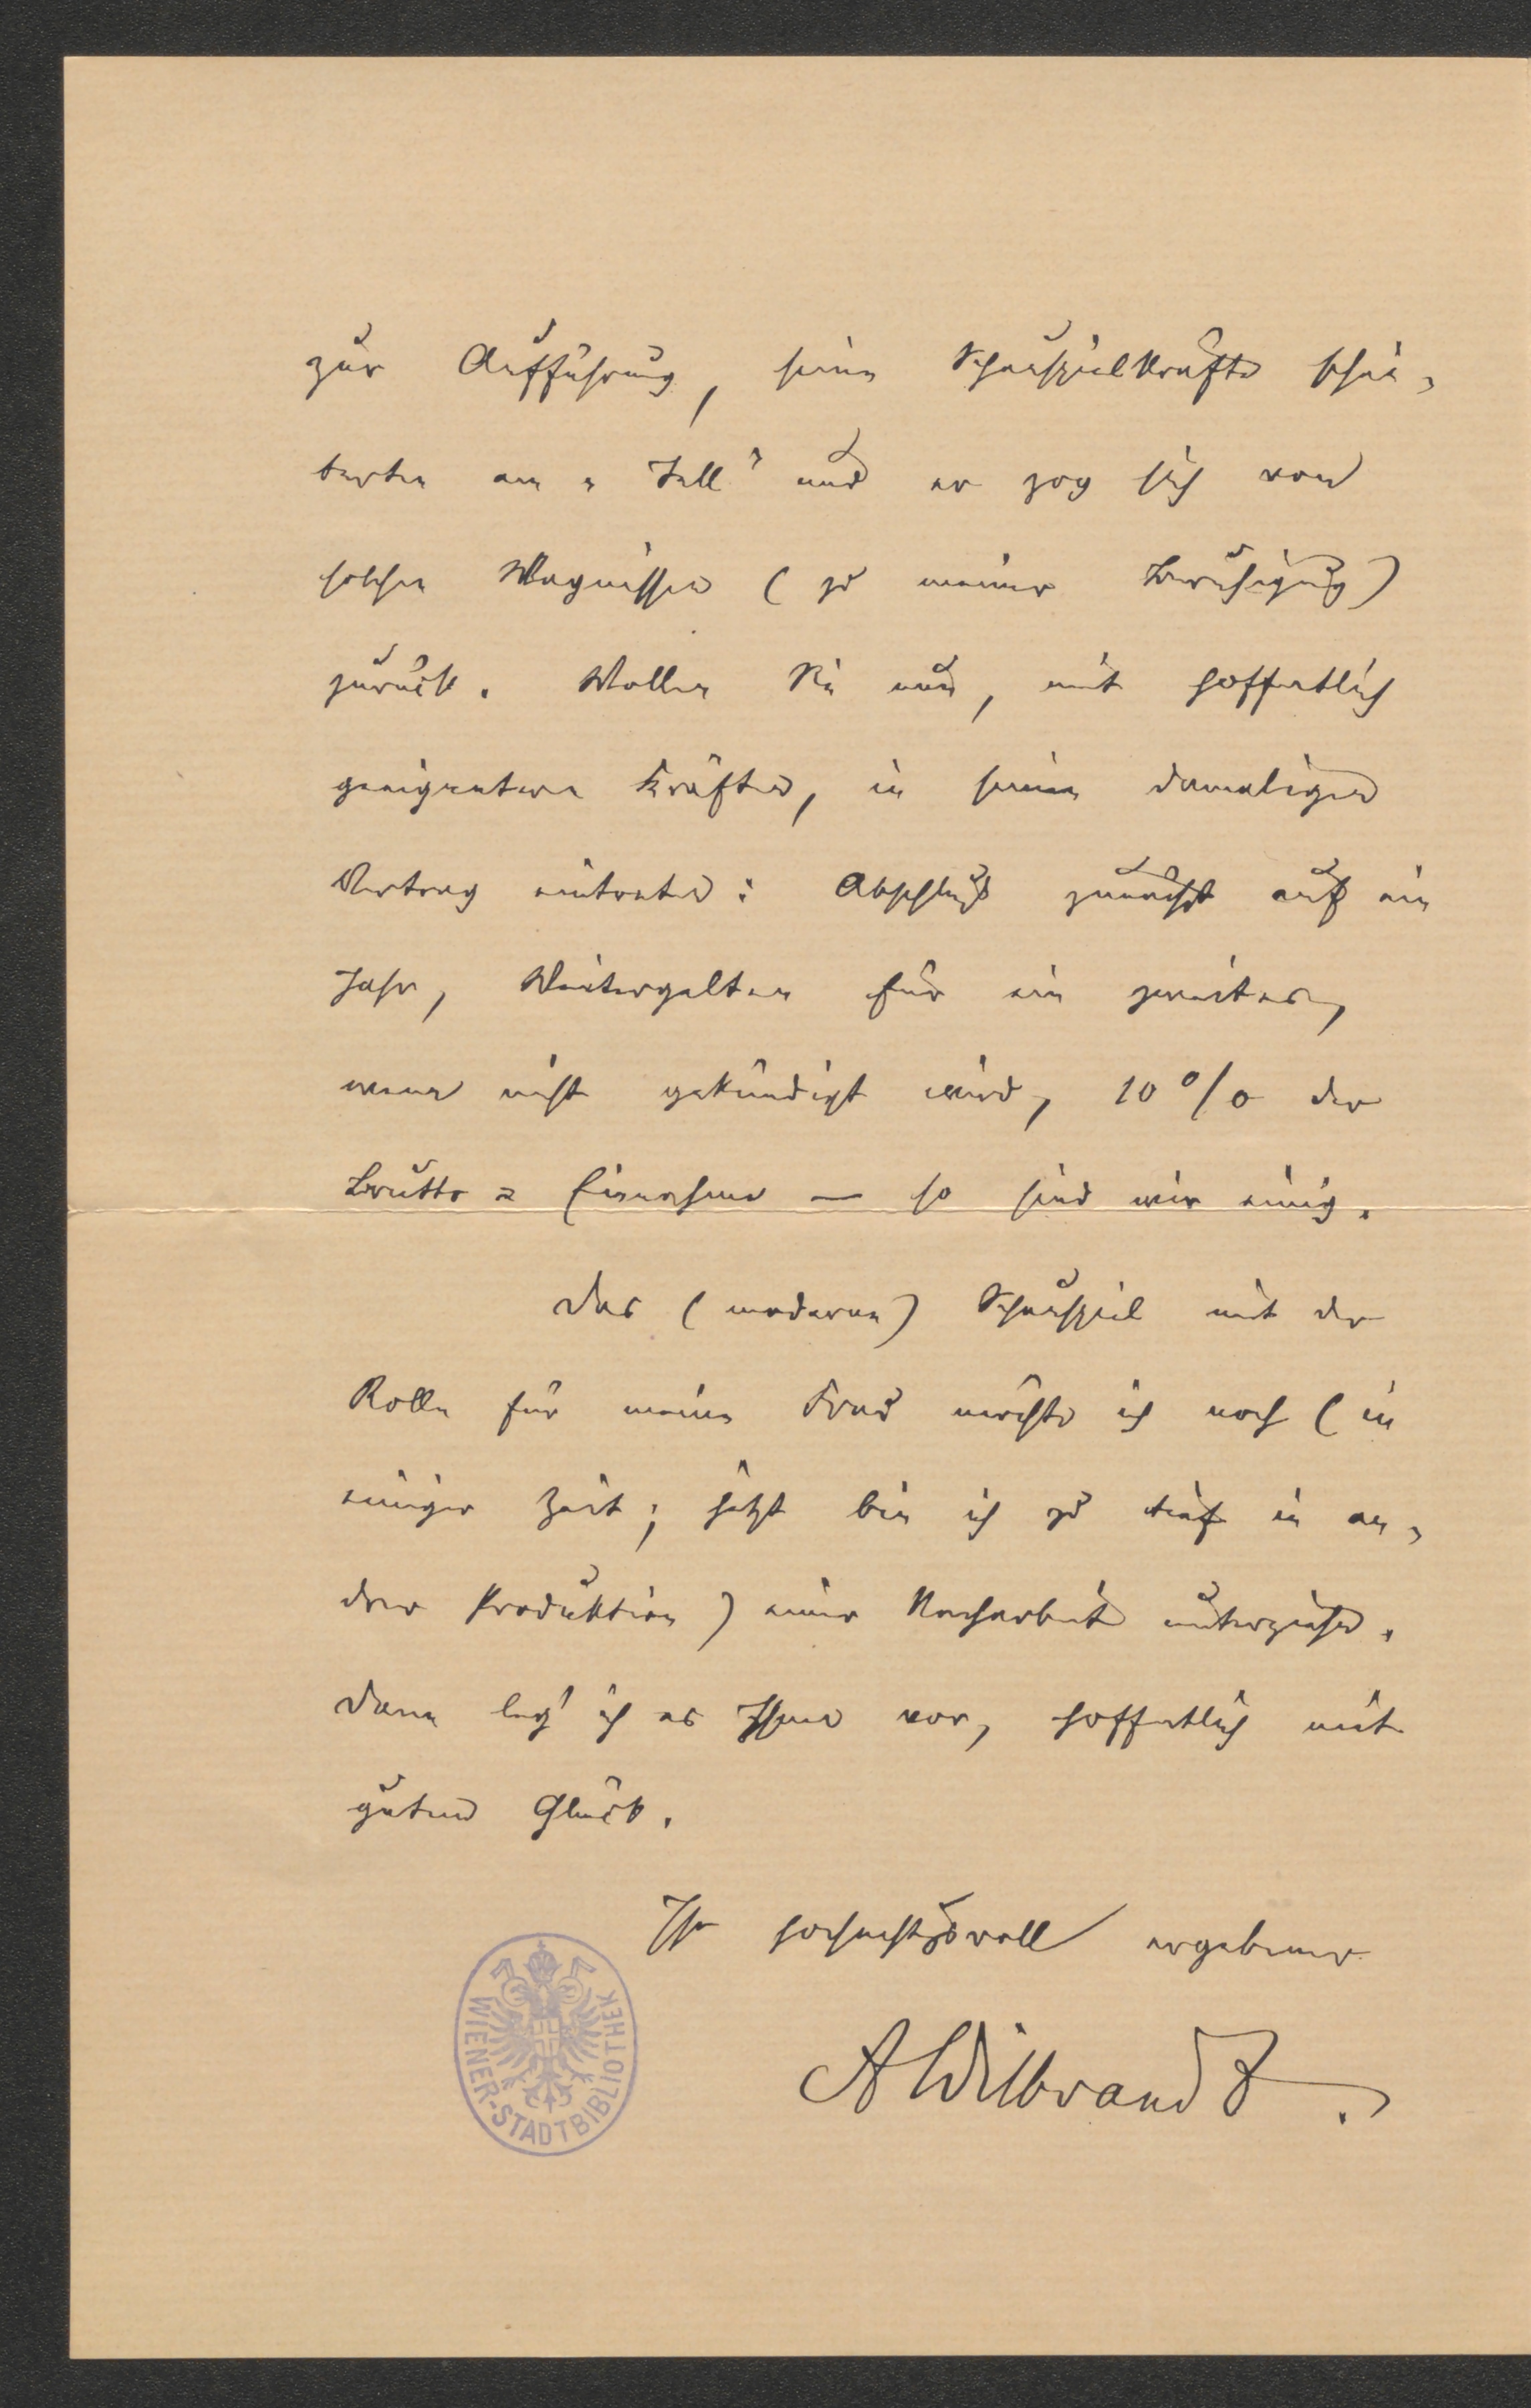 zur Aufführung, seine Schauspielkräfte schei-
terten am „Tell" und er zog sich von
solchen Wagnissen (zu meiner Beruhigung)
zurück. Wollen Sie nun, mit hoffentlich
geeigneteren Kräften, in seinen damaligen
Vertrag eintreten: Abschluß zunächst auf ein
Jahr, Weitergelten für ein zweites,
wenn nicht gekündigt wird, 10 % der
Brutto=Einnahme — so sind wir einig.
Das (moderne) Schauspiel mit der
Rolle für meine Frau möchte ich noch (in
einiger Zeit; jetzt bin ich zu tief in an-
drer Produktion) einer Nacharbeit unterziehen.
Dann leg' ich es Ihnen vor, hoffentlich mit
gutem Glück.
Ihr hochachtungsvoll ergebener
AWilbrandt.
WIENER-STADTBIBLIOTHEK